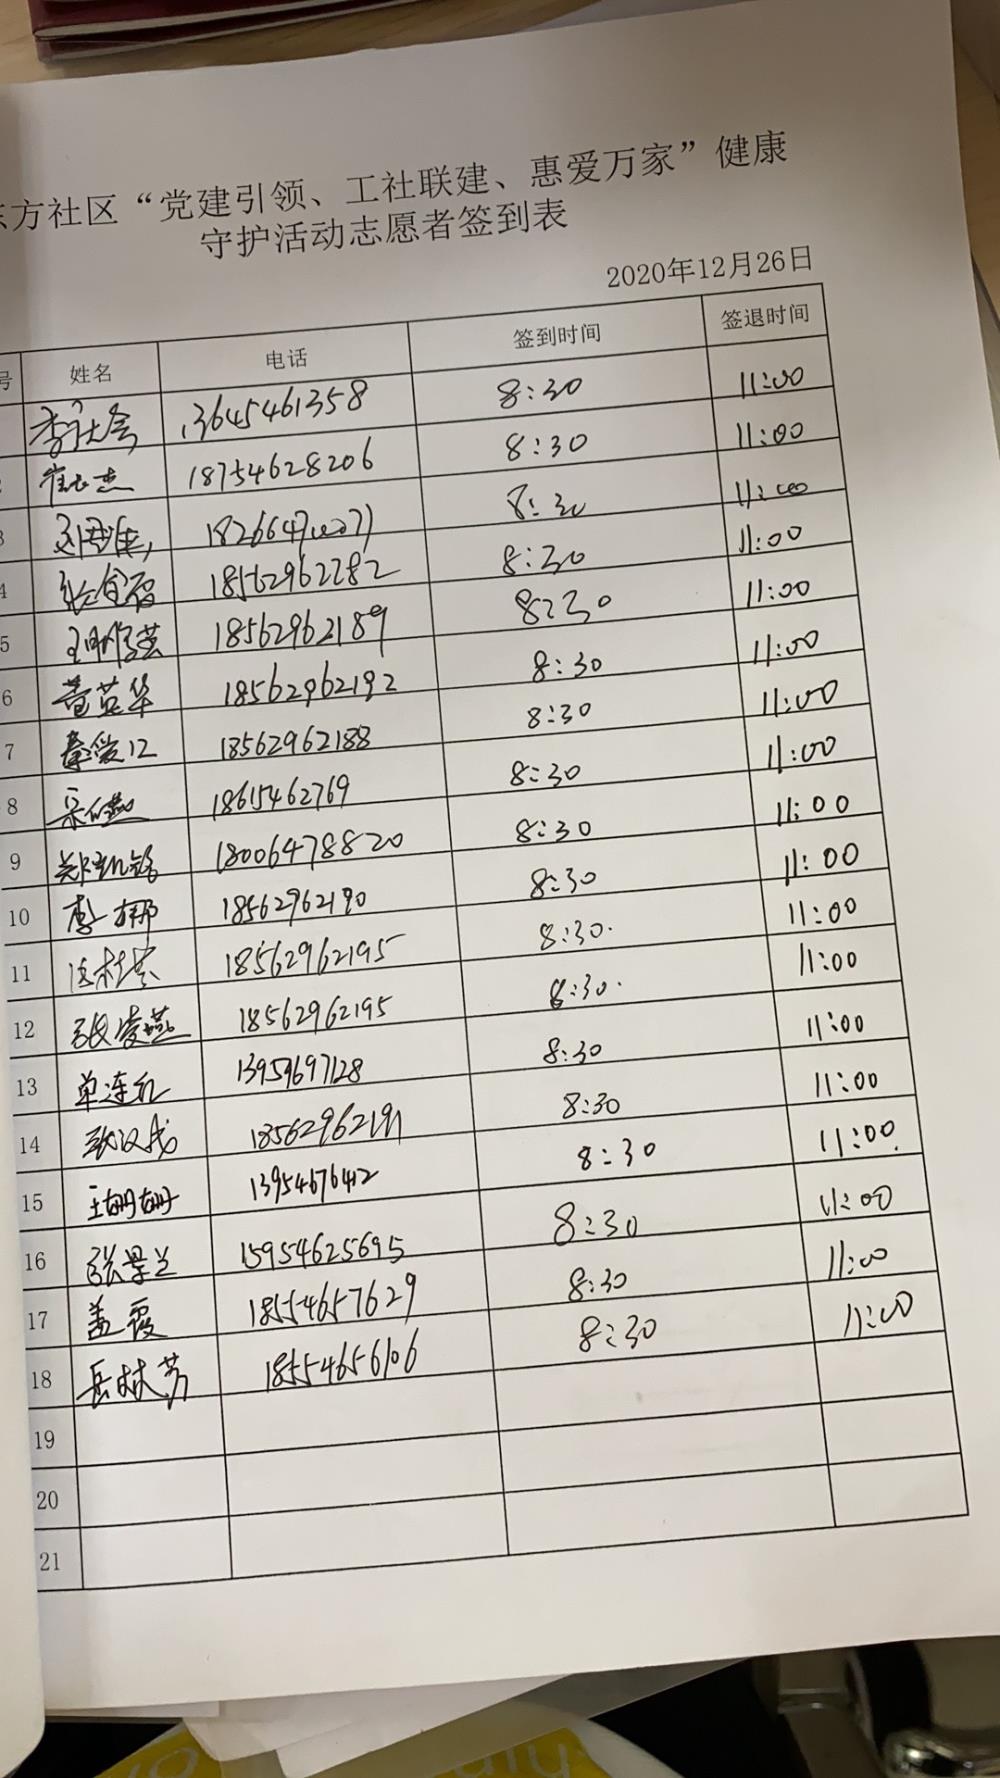 东方社区“党建引领、工社联建、惠爱万家”健康
守护活动志愿者签到表
2020年12月26日
号 姓名 电话 签到时间 签退时间
13645461358 8:30 11:00
2 18754628206 8:30 11:00
3 8:30 11:00
4 18562962282 8:30 11:00
5 18562962189 8:30 11:00
6 董英华 18562962192 8:30 11:00
7 秦爱江 18562962188 8:30 11:00
8 18615462769 8:30 11:00
9 郑凯铭 18006478820 8:30 11:00
10 李娜 18562962190 8:30 11:00
11 18562962195 8:30 11:00
12 张凌燕 18562962195 8:30 11:00
13 单连红 13959697128 8:30 11:00
14 18562962191 8:30 11:00
15 王姗姗 13954676412 8:30 11:00
16 张景兰 15954625695 8:30 11:00
17 盖霞 18554657629 8:30 11:00
18 岳林芳 18554656106 8:30 11:00
19
20
21